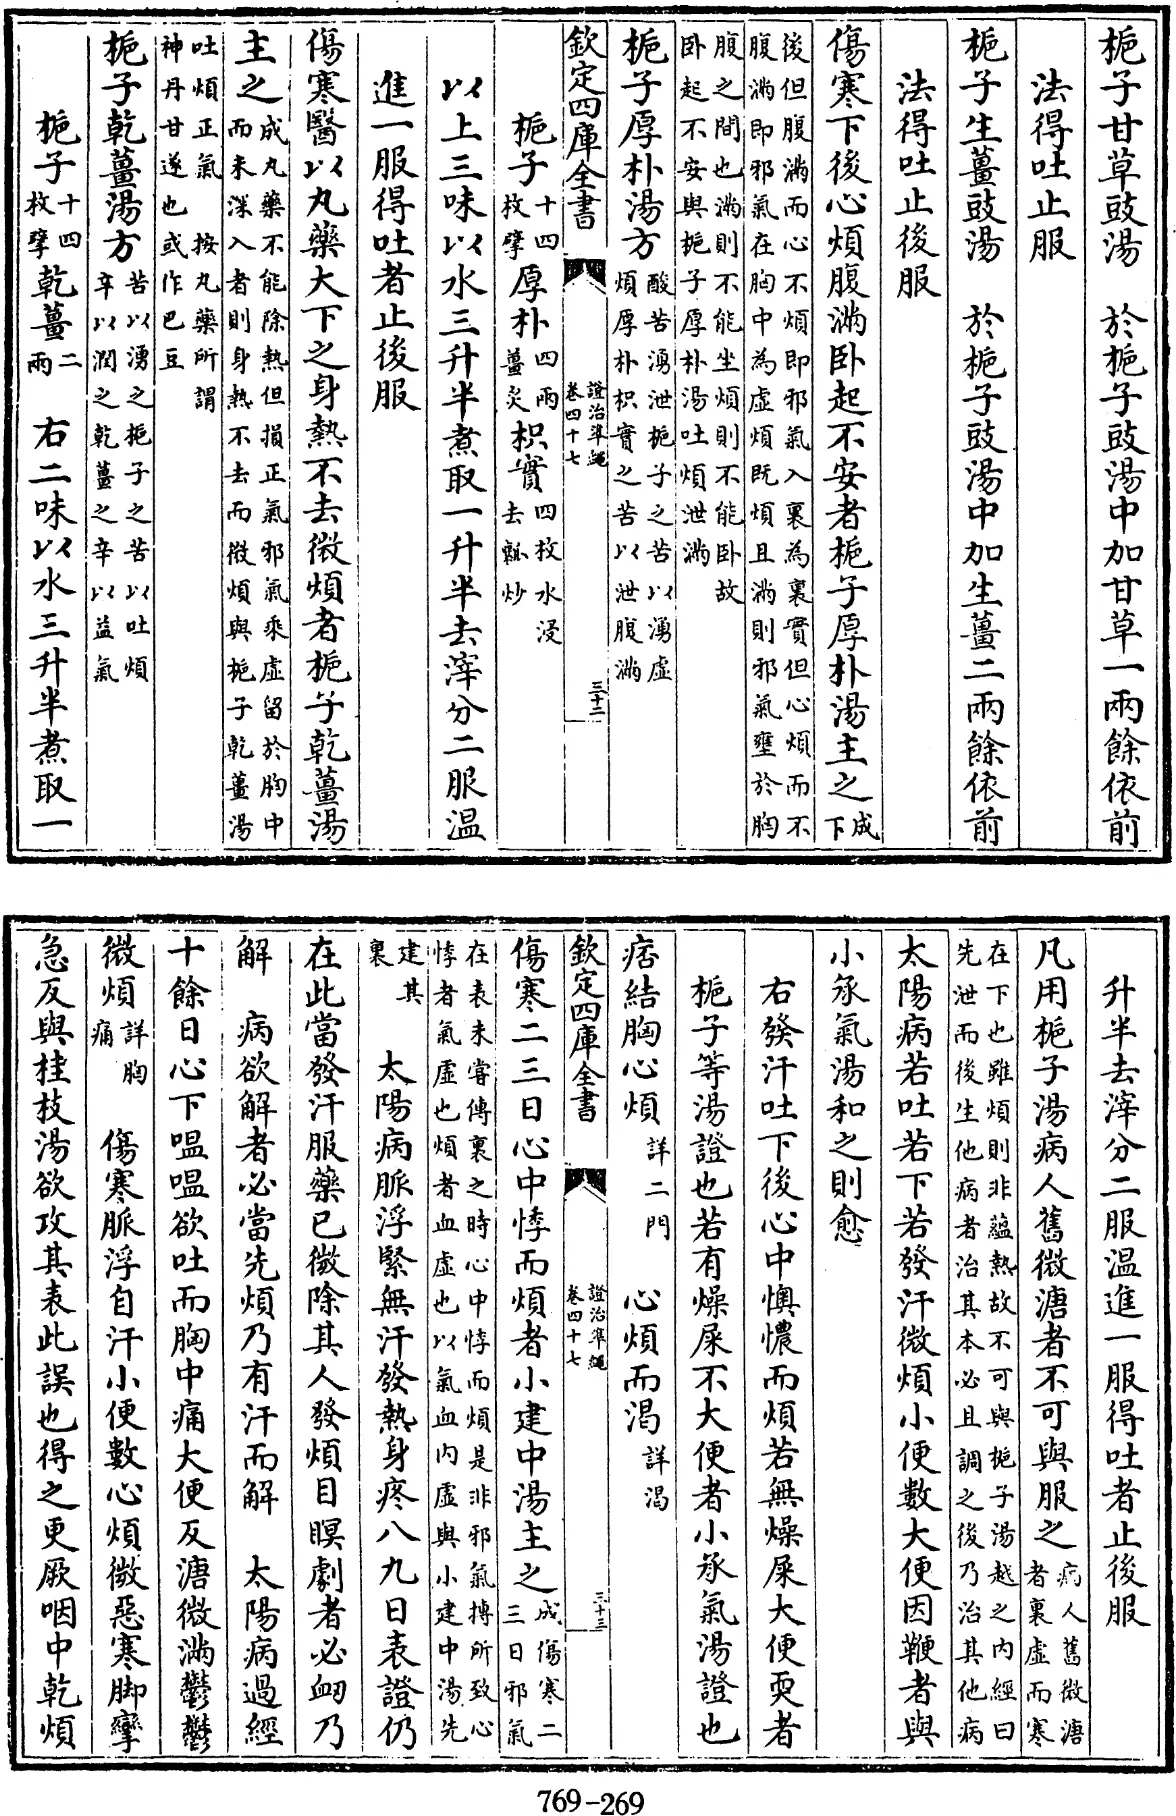 梔子甘草豉湯　於梔子豉湯中加甘草一兩餘依前
法得吐止服
梔子生薑豉湯　於梔子豉湯中加生薑二兩餘依前
法得吐止後服
傷寒下後心煩腹滿卧起不安者梔子厚朴湯主之成下
後但腹滿而心不煩即邪氣入裏為裏實但心煩而不
腹滿即邪氣在胸中為虛煩既煩且滿則邪氣壅於胸
腹之間也滿則不能坐煩則不能卧故
卧起不安與梔子厚朴湯吐煩泄滿
梔子厚朴湯方酸苦湧泄梔子之苦以湧虛
煩厚朴枳實之苦以泄腹滿
欽定四庫全書　證治準繩
卷四十七　三十二
梔子十四枚擘厚朴四兩薑炙枳實四枚水浸去瓤炒
以上三味以水三升半煮取一升半去滓分二服温
進一服得吐者止後服
傷寒醫以丸藥大下之身熱不去微煩者梔子乾薑湯
主之成丸藥不能除熱但損正氣邪氣乘虛留於胸中
而未深入者則身熱不去而微煩與梔子乾薑湯
吐煩正氣　按丸藥所謂
神丹甘遂也或作巴豆
梔子乾薑湯方苦以湧之梔子之苦以吐煩
辛以潤之乾薑之辛以益氣
梔子十四枚擘乾薑二兩　右二味以水三升半煮取一
升半去滓分二服温進一服得吐者止後服
凡用梔子湯病人舊微溏者不可與服之病人舊微溏
者裏虛而寒
在下也雖煩則非蘊熱故不可與梔子湯越之内經曰
先泄而後生他病者治其本必且調之後乃治其他病
太陽病若吐若下若發汗微煩小便數大便因鞕者與
小承氣湯和之則愈
右發汗吐下後心中懊憹而煩若無燥屎大便耎者
梔子等湯證也若有燥屎不大便者小承氣湯證也
痞結胸心煩詳二門　心煩而渴詳渴
欽定四庫全書　證治準繩
卷四十七　三十三
傷寒二三日心中悸而煩者小建中湯主之成傷寒二
三日邪氣
在表未嘗傳裏之時心中悸而煩是非邪氣搏所致心
悸者氣虛也煩者血虛也以氣血内虛與小建中湯先
建其裏　太陽病脈浮緊無汗發熱身疼八九日表證仍
在此當發汗服藥已微除其人發煩目瞑劇者必衂乃
解　病欲解者必當先煩乃有汗而解　太陽病過經
十餘日心下嗢嗢欲吐而胸中痛大便反溏微滿鬱鬱
微煩詳胸痛　傷寒脈浮自汗小便數心煩微惡寒脚攣
急反與桂枝湯欲攻其表此誤也得之更厥咽中乾煩
769-269